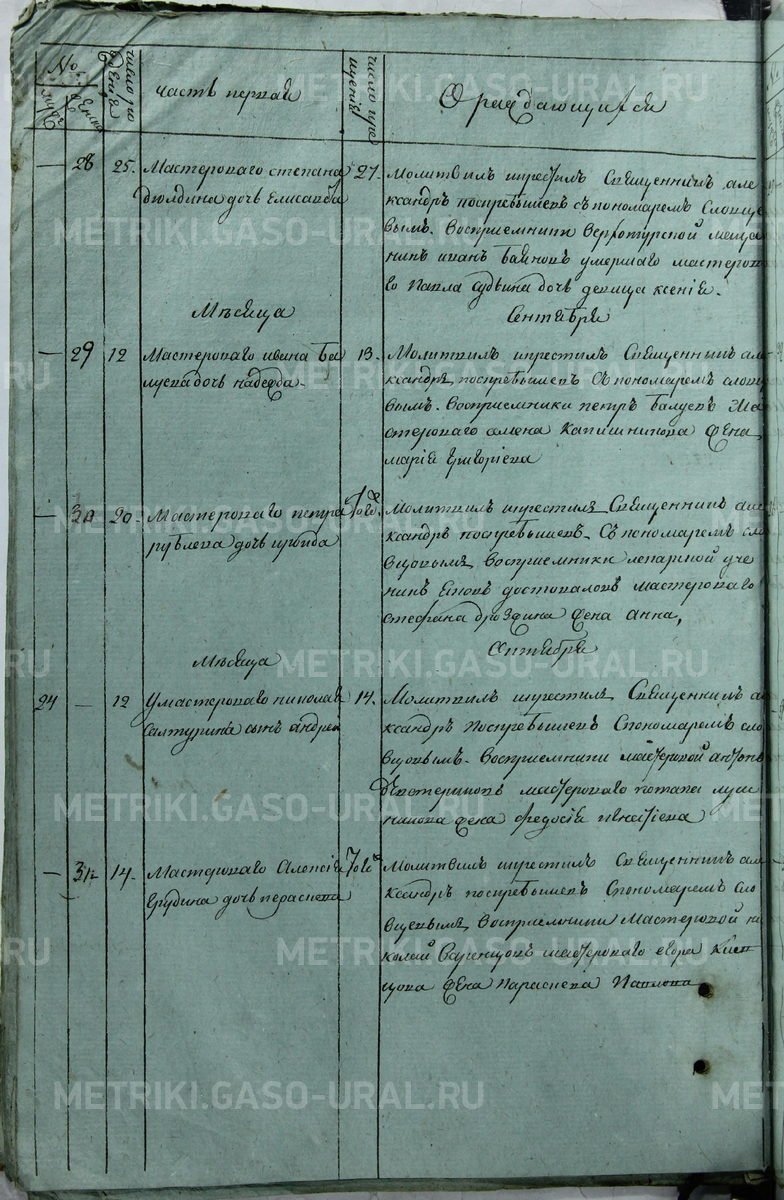 No.
муж
женс
число рождения
часть первая
число крещения
О раждающихся
— 28 25. Мастероваго степана
дюлдина дочь Елисавѣа
27. Молитвилъ икрестилъ Священникъ але
ксандръ поспѣвышевъ съпономаремъ Словце
вымъ. Восприемники Верхотурской меща
нинъ иванъ умершаго мастерова
го Павла Судвина дочь девица ксенія.
Мѣсяца
Сентября
— 29 12 Мастероваго ивана Ба
луева дочь надежда.
13. Молитвилъ икрестилъ Священникъ але
ксандръ поспѣвышевъ Съпономаремъ словце
вымъ. Восприемники петръ Балуевъ Ма
стероваго семена Капишникова жена
марія григоріева
— 30 20. Мастероваго петра
рублева дочь ираида
Того ж
Молитвилъ икрестилъ Священникъ але
ксандръ поспѣвышевъ. Съ пономаремъ сло
вцовымъ Восприемники лекарской уче
никъ достоваловъ мастероваго
стефана дроздина жена анна,
Мѣсяца
Октября
24 — 12 Умастероваго николая
Салтурина сынъ андрей
14. Молитвилъ икрестилъ Священникъ але
ксандръ Поспѣвышевъ Спономаремъ сло
вцовымъ. Восприемники мастеровой антонъ
Екатериновъ мастероваго потапа
жена федосія игнатіева
— 31 14. Мастероваго Алексія
Ерудина дочь параскева
Того ж
Молитвилъ икрестилъ Священникъ але
ксандръ поспѣвышевъ Спономаремъ сло
вцевымъ Восприемники Мастеровой ни
колай мастероваго егора
жена Параскева Павлова
METRIKI.GASO-URAL.RU